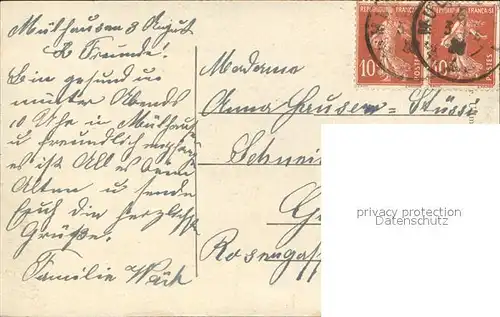 Mülhausen 8 August
L Freunde!
Bin gesund u
munter Abends
10 Uhr in Mülhaus
u freundlich
es ist All es beim
Alten u sende
Euch die herzlichst
Grüße.
Familie
Madame
Anna Hauser = Stüssi
Schnei
Rosengass
REPUBLIQUE FRANÇAISE
10 POSTES
REPUBLIQUE FRANÇAISE
10 POSTES
privacy protection
Datenschutz